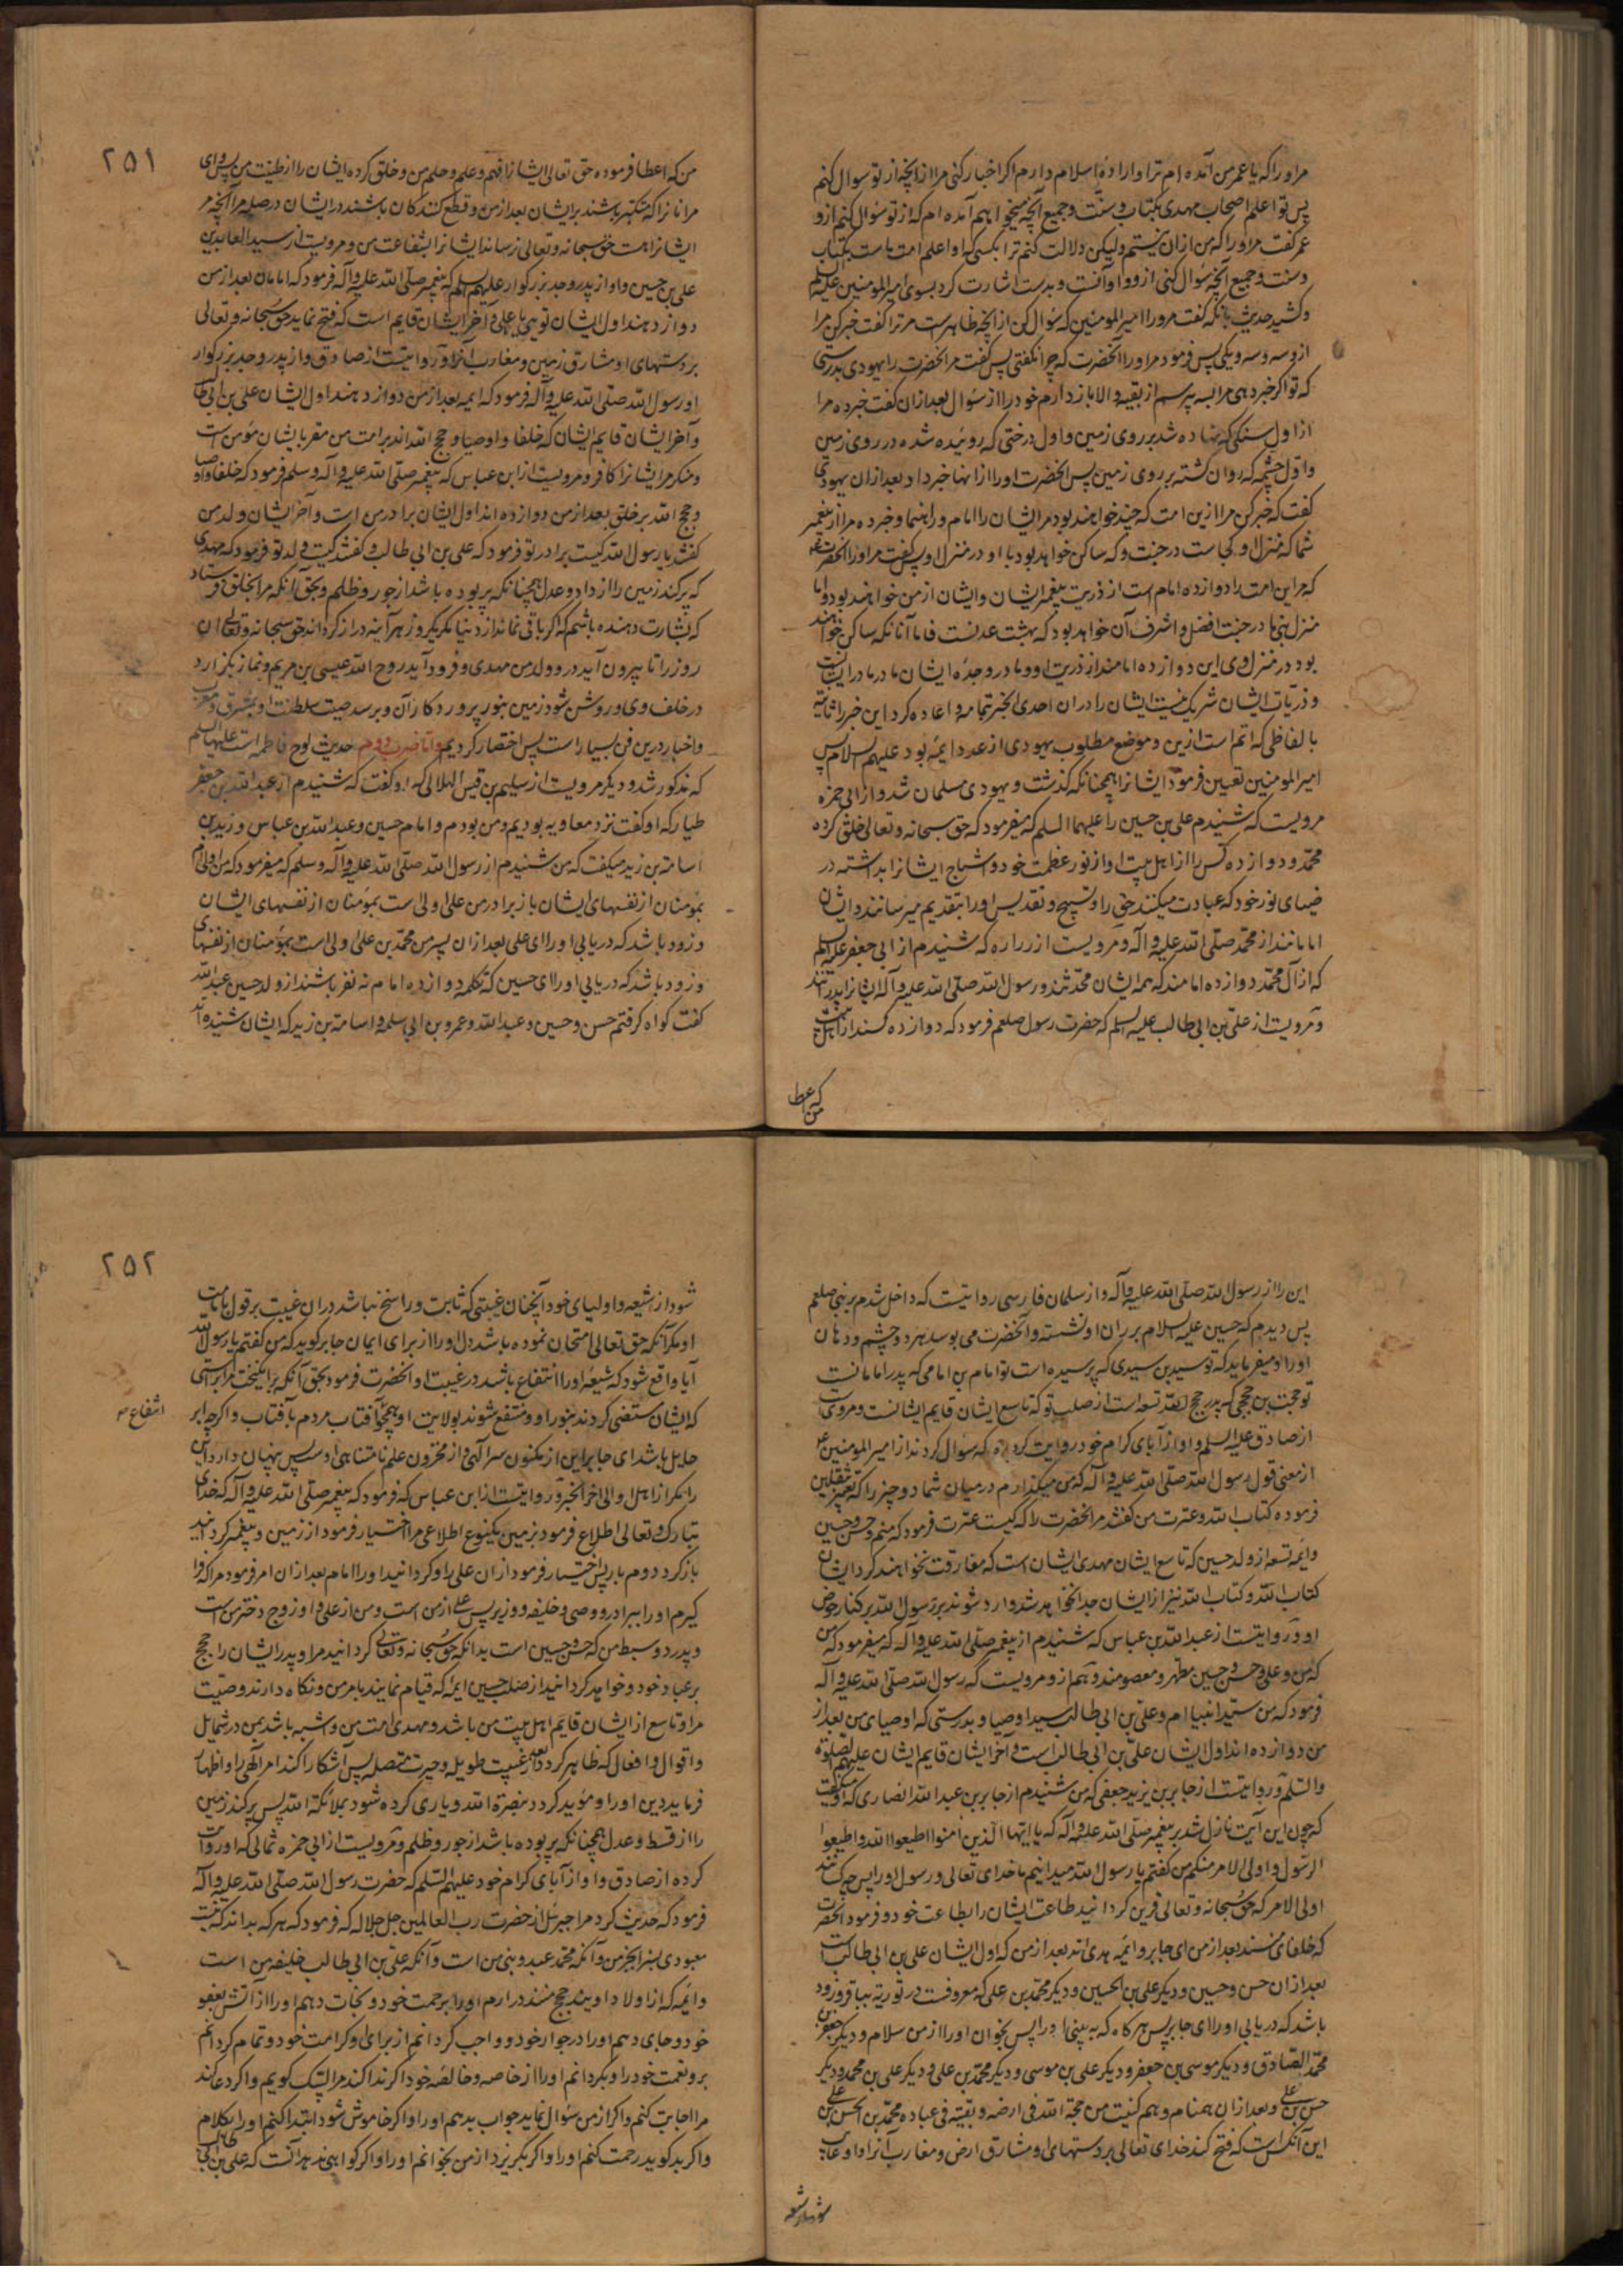 مر اورا که یا عمر من آمده ام ترا و اراده اسلام دارم اگر اخبار کنی مرا از آنچه از تو سوال کنم
پس تو اعلم اصحاب مهدی بکتاب و سنت و جمیع آنچه میخواهم آمده ام که از تو سؤال کنم ازو
عمر گفت مر اورا که من از ان نیستم ولیکن دلالت کنم ترا بکسی که او اعلم امت ماست بکتاب
و سنت و جمیع آنچه سؤال کنی ازو و او آنست و بدست اشارت کرد بسوی امیرالمؤمنین علیه السلم
و کشید حدیث بانکه گفت مرورا امیرالمومنین که سؤال کن از آنچه ظاهرست مر ترا گفت خبر کن مرا
از سه و سه و یکی پس فرمود مر اورا آنحضرت که چرا نگفتی پس گفت مر انحضرت را یهودی بدرستی
که تو اگر خبر دهی مرا بسه بپرسم از بقیه و الا باز دارم خود را از سؤال بعد ازان گفت خبر ده مرا
از اول سنگی که نهاده شد بر روی زمین و اول درختی که روئیده شده در روی زمین
و اول چشمه که روان گشته بر روی زمین پس انحضرت اورا از انها خبر داد بعد ازان یهودی
گفت که خبر کن مرا ازین امت که چند خواهند بود مر ایشان را امام و راهنما و خبر ده مرا از پیغمبر
شما که منزل او کجاست در جنت و که ساکن خواهد بود با او در منزل او پس گفت مر اورا انحضرت
که مر این امت را دوازده امام است از ذریت پیغمبر ایشان و ایشان از من خواهند بود و اما
منزل نبی ما در جنت افضل و اشرف آن خواهد بود که بهشت عدنست فاما آنانکه ساکن خواهند
بود در منزل وی این دوازده امامند از ذریت او و مادر و جده ایشان مادر مادر ایشانست
و ذریات ایشان شریک نیست ایشان را دران احدی الخبر بتمامه و اعاده کرد این خبر را ثانیه
بالفاظی که اتم است ازین و موضع مطلوب یهودی از عدد ائمه بود علیهم السلام پس
امیرالمومنین تعیین فرمود ایشانرا همچنانکه گذشت و یهودی مسلمان شد و از ابی حمزه
مرویست که شنیدم علی بن حسین را علیهما السلم که میفرمود که حق سبحانه و تعالی خلق کرده
محمد و دوازده کس را از اهل بیت او از نور عظمت خود و اشباح ایشانرا بداشته در
ضیای نور خود که عبادت میکنند حق را و تسبیح و تقدیس اورا بتقدیم میرسانند و ایشان
امامانند از محمد صلی الله علیه و اله و مرویست از زراره که شنیدم از ابی جعفر علیه السلم
که از آل محمد دوازده امامند که همه ایشان محدثند و رسول الله صلی الله علیه و اله ایشانرا پدرانند
و مرویست از علی بن ابی طالب علیه السلم که حضرت رسول صلعم فرمود که دوازده کسند از اهل بیت
من که عطا
۲۵۱
من که اعطا فرموده حق تعالی ایشانرا فهم و علم و حلم من و خلق کرده ایشان را از طینت من پس وای
مر انانرا که متکبر باشند بر ایشان بعد از من و قطع کنندگان باشند در ایشان در صله مرا آنچه مر
ایشانراست حق سبحانه و تعالی نرساند ایشانرا بشفاعت من و مرویست از سیدالعابدین
علی بن حسین و او از پدر و جد بزرگوار علیهم السلم که پیغمبر صلی الله علیه و آله فرمود که امامان بعد از من
دوازدهند اول ایشان تویی یا علی و آخر ایشان قایم است که فتح نماید حق سبحانه و تعالی
بر دستهای او مشارق زمین و مغارب آنرا و روایتست از صادق و از پدر و جد بزرگوار
او رسول الله صلی الله علیه و آله فرمود که ایمه بعد از من دوازدهند اول ایشان علی بن ابی طالب
و آخر ایشان قایم ایشان که خلفا و اوصیا و حجج الله اند بر امت من مقر بایشان مؤمن است
و منکر مر ایشانرا کافر و مرویست از ابن عباس که پیغمبر صلی الله علیه و آله وسلم فرمود که خلفا و اوصیا
و حجج الله بر خلق بعد از من دوازده اند اول ایشان برادر من است و آخر ایشان ولد من
گفتند یا رسول الله کیست برادر تو فرمود که علی بن ابی طالب و گفتند کیست ولد تو فرمود که مهدی
که پر کند زمین را از داد و عدل همچنانکه پر بوده باشد از جور و ظلم و بحق آنکه مرا بخلق فرستاد
که بشارت دهنده باشم که اگر باقی نماند از دنیا مگر یکروز هر آینه دراز گرداند حق سبحانه و تعالی ان
روز را تا بیرون آید در و ولد من مهدی و فرود آید روح الله عیسی بن مریم و نماز بگزارد
در خلف وی و روشن شود زمین بنور پروردگار آن و برسد صیت سلطنت او بمشرق و مغرب
و اخبار درین فن بسیار است پس اختصار کردیم و اما ضرب دوم حدیث لوح فاطمه است علیها السلم
که مذکور شد و دیگر مرویست از سلیم بن قیس الهلالی که او گفت که شنیدم از عبدالله بن جعفر
طیار که او گفت نزد معاویه بودیم و من بودم و امام حسین و عبدالله بن عباس و زید بن
اسامة بن زید میگفت که من شنیدم از رسول الله صلی الله علیه و آله وسلم که میفرمود که من اولی ام
بمومنان از نفسهای ایشان باز برادر من علی اولی است بمؤمنان از نفسهای ایشان
و زود باشد که دریابی اورا ای علی بعد ازان پسر من محمد بن علی اولی است بمؤمنان از نفسهای
و زود باشد که دریابی اورا ای حسین که تکلمه دوازده امام نه نفر باشند از ولد حسین عبدالله
گفت گواه گرفتم حسن و حسین و عبدالله و عمرو بن ابی سلمه و اسامة بن زید که ایشان شنیده اند
این را از رسول الله صلی الله علیه و آله و از سلمان فارسی روایتیست که داخل شدم بر نبی صلعم
پس دیدم که حسین علیه السلام بر ران او نشسته و آنحضرت می بوسد هر دو چشم و دهان
اورا و میفرماید که تو سید بن سیدی که پرسیده است تو امام بن امامی که پدر امامانست
تو حجت بن حجتی که پدر حجج الله تسعه است از صلب تو که تاسع ایشان قایم ایشانست و مرویست
از صادق علیه السلم و او از آبای کرام خود روایت کرده که سؤال کردند از امیرالمومنین
از معنی قول رسول الله صلی الله علیه و آله که من میگذارم در میان شما دو چیز را که تعبیر بثقلین
فرموده کتاب الله و عترت من گفتند مر انحضرت را که کیست عترت فرمود که منم و حسن و حسین
و ائمه تسعه از ولد حسین که تاسع ایشان مهدی ایشان است که مفارقت نخواهند کرد ایشان
کتاب الله و کتاب الله نیز از ایشان جدا نخواهد شد و وارد شوند بر رسول الله بر کنار حوض
او و روایتست از عبدالله بن عباس که شنیدم از پیغمبر صلی الله علیه و آله که میفرمود که من
که من و علی و حسن و حسین مطهر و معصومند و هم ازو مرویست که رسول الله صلی الله علیه و آله
فرمود که من سید انبیاام و علی بن ابی طالب سید اوصیا و بدرستی که اوصیای من بعد از
من دوازده اند اول ایشان علی بن ابی طالب است و آخر ایشان قایم ایشان علیهم الصلوة
والسلم و روایتست از جابر بن یزید جعفی که من شنیدم از جابر بن عبدالله انصاری که او میگفت
که چون این آیت نازل شد بر پیغمبر صلی الله علیه و آله که یا ایها الذین امنوا اطیعوا الله و اطیعوا
الرسول و اولی الامر منکم من گفتم یا رسول الله میدانیم ما خدای تعالی و رسول اورا پس چه کسانند
اولی الامر که حق سبحانه و تعالی قرین گردانید طاعت ایشان را بطاعت خود و فرمود انحضرت
که خلفای منند بعد از من ای جابر و ائمه هدی اند بعد از من که اول ایشان علی بن ابی طالب است
بعد ازان حسن و حسین و دیگر علی بن الحسین و دیگر محمد بن علی که معروفست در توریة بباقر و زود
باشد که دریابی اورا ای جابر پس هر گاه که به بینی اورا پس بخوان اورا از من سلام و دیگر جعفر بن
محمد الصادق و دیگر موسی بن جعفر و دیگر علی بن موسی و دیگر محمد بن علی و دیگر علی بن محمد و دیگر
حسن بن علی و بعد ازان همنام و هم کنیت من حجة الله فی ارضه و بقیته فی عباده محمد بن الحسن بن علی
این آنکس است که فتح کند خدای تعالی بر دستهای او مشارق ارض و مغارب آنرا و او غایب
شود از شیعه
۲۵۲
شود از شیعه و اولیای خود آنچنان غیبتی که ثابت و راسخ نباشد دران غیبت بر قول بامامت
او مگر آنکه حق تعالی امتحان نموده باشد دل اورا از برای ایمان جابر گوید که من گفتم یا رسول الله
آیا واقع شود که شیعه اورا انتفاع باشد در غیبت او انحضرت فرمود بحق آنکه برانگیخت مرا براستی
که ایشان مستضی گردند بنور او و منتفع شوند بولایت او همچو آفتاب مردم بآفتاب و اگر چه ابر
انتفاع
حایل باشد ای جابر این از مکنون سر الهی و از مخزون علم نامتناهی اوست پس پنهان دار این
را مگر از اهل او الی اخر الخبر و روایتست از ابن عباس که فرمود که پیغمبر صلی الله علیه و آله که خدای
تبارک و تعالی اطلاع فرمود بزمین یکنوع اطلاعی مرا اختیار فرمود از زمین و پیغمبر گردانید
باز کرد دوم بار پس اختیار فرمود ازان علی را و گردانید اورا امام بعد ازان امر فرمود مرا که فرا
گیرم اورا ببرادر و وصی و خلیفه و وزیر پس علی از من است و من از علی و او زوج دختر من است
و پدر دو سبط من که حسن و حسین است بدانکه حق سبحانه و تعالی گردانید مرا و پدر ایشان را حجج
بر عباد خود و خواهد گردانید از صلب حسین ایمه که قیام نمایند بامر من و نگاه دارند وصیت
مرا و تاسع از ایشان قایم اهل بیت من باشد و مهدی امت من و اشبه باشد بمن در شمایل
و اقوال و افعال که ظاهر گردد بعد غیبت طویله و حیرت متصله پس آشکارا کند امر الهی را و اظهار
فرماید دین اورا و مؤید گردد بنصرة الله و یاری کرده شود بملائکة الله پس پر کند زمین
را از قسط و عدل همچنانکه پر بوده باشد از جور و ظلم و مرویست از ابی حمزه ثمالی که او روایت
کرده از صادق و او از آبای کرام خود علیهم السلم که حضرت رسول الله صلی الله علیه و آله
فرمود که حدیث کرد مرا جبرئل از حضرت رب العالمین جل جلاله که فرمود که هر که بداند که نیست
معبودی بسزا بجز من و آنکه محمد عبد و نبی من است و آنکه علی بن ابی طالب خلیفه من است
و ائمه که از اولاد اویند حجج منند در ارم اورا برحمت خود و نجات دهم اورا از آتش بعفو
خود و جای دهم اورا در جوار خود و واجب گردانم از برای او کرامت خود و تمام گردانم
برو نعمت خود را و بگردانم اورا از خاصه و خالصه خود اگر ندا کند مرا لبیک گویم و اگر دعا کند
مرا اجابت کنم و اگر از من سؤال نماید جواب بدهم اورا و اگر خاموش شود ابتدا کنم اورا بکلام
و اگر بد گوید رحمت کنم اورا و اگر بگریزد از من بخوانم اورا و اگر گواهی ندهد آنست که علی بن ابی طالب